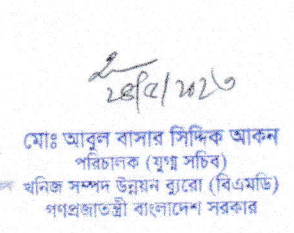 মোঃ আবুল বাসার সিদ্দিক আকন
পরিচালক (যুগ্ম সচিব)
খনিজ সম্পদ উন্নয়ন ব্যুরো (বিএমডি)
গণপ্রজাতন্ত্রী বাংলাদেশ সরকার